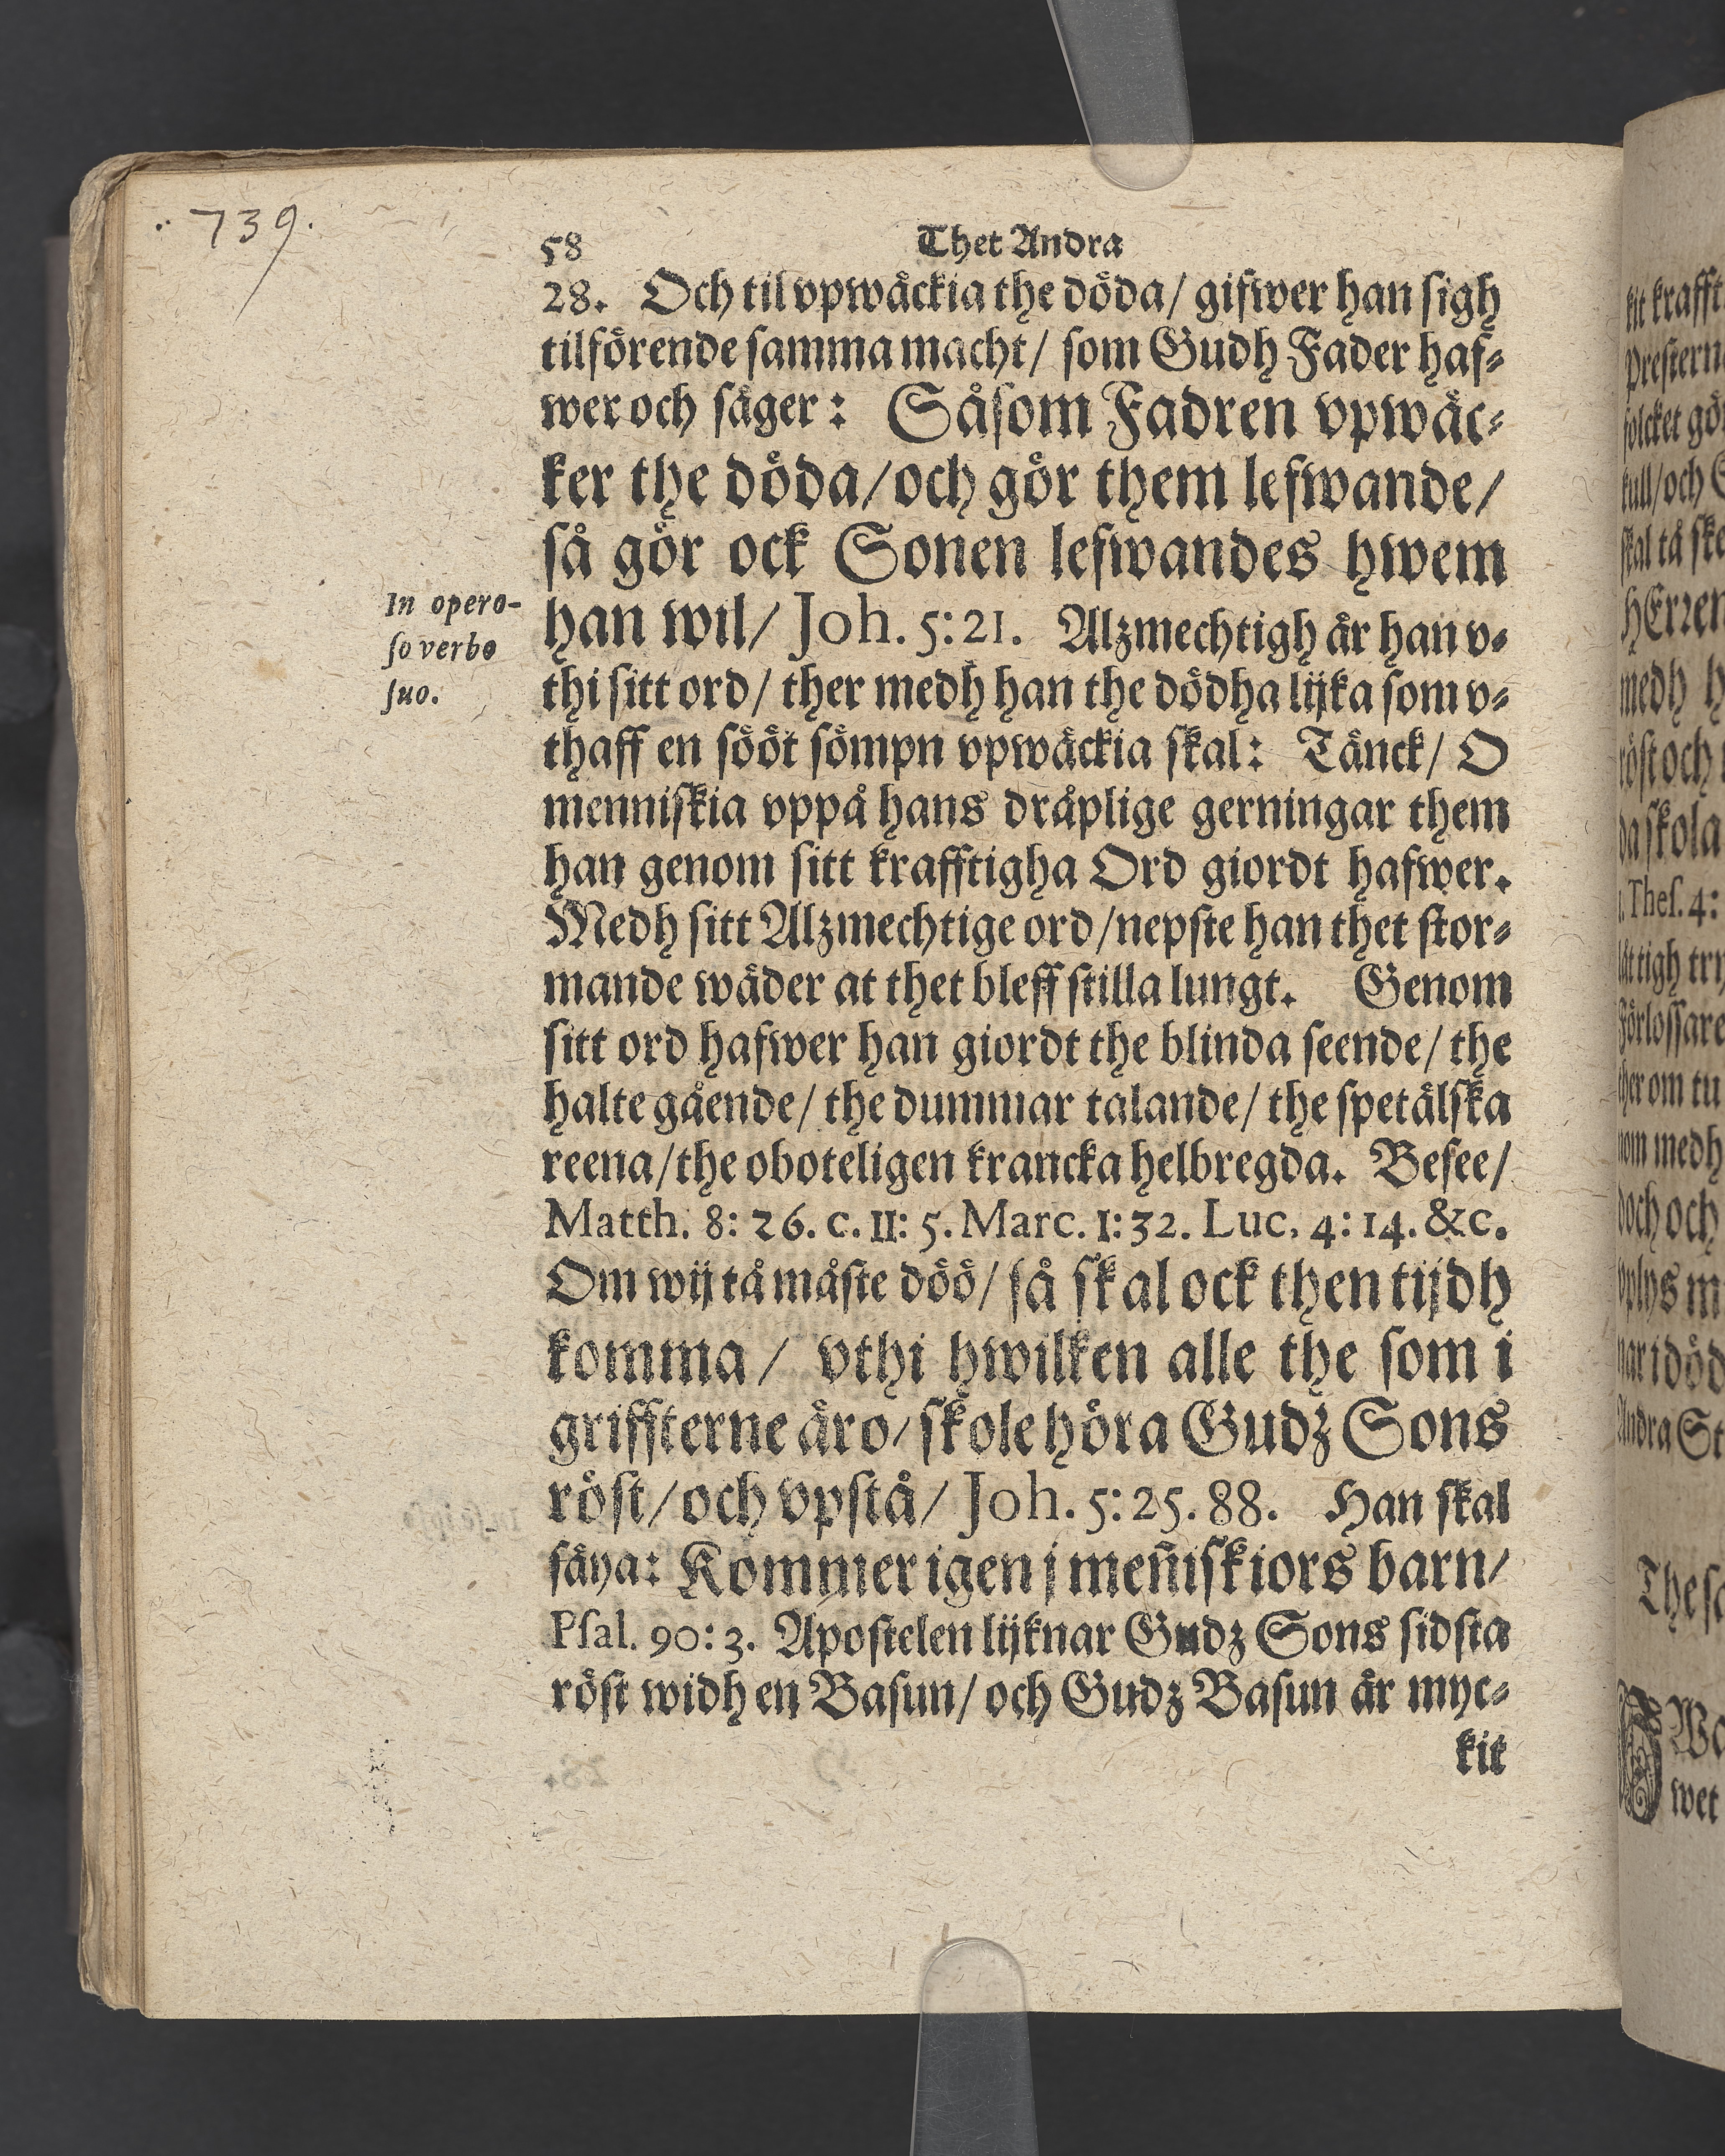 739.
58 Thet Andra
28. Och til vpwäckia the döda/ gifwer han sigh
tilförende samma macht/ som Gudh Fader haf⸗
wer och säger: Såsom Fadren vpwäc⸗
ker the döda/ och gör them lefwande/
så gör ock Sonen lefwandes hwem
In opero-
so verbo
suo.
han wil/ Joh. 5:21. Alzmechtigh är han v⸗
thi sitt ord/ ther medh han the dödha lijka som v⸗
thaff en sööt sömpn vpwäckia skal: Tänck/ O
menniskia vppå hans dråplige gerningar them
han genom sitt krafftigha Ord giordt hafwer.
Medh sitt Alzmechtige ord/ nepste han thet stor⸗
mande wäder at thet bleff stilla lungt. Genom
sitt ord hafwer han giordt the blinda seende/ the
halte gående/ the dummar talande/ the spetälska
reena/ the oboteligen krancka helbregda. Besee/
Matth. 8: 26. c. II: 5. Marc. I: 32. Luc. 4: 14. &c.
Om wij tå måste döö/ så skal ock then tijdh
komma/ vthi hwilken alle the som i
griffterne äro/ skole höra Gudz Sons
röst/ och vpstå/ Joh. 5: 25. 88. Han skal
säya: Kommer igen j meñiskiors barn/
Psal. 90: 3. Apostelen lijknar Gudz Sons sidsta
röst widh en Basun/ och Gudz Basun är myc⸗
kit